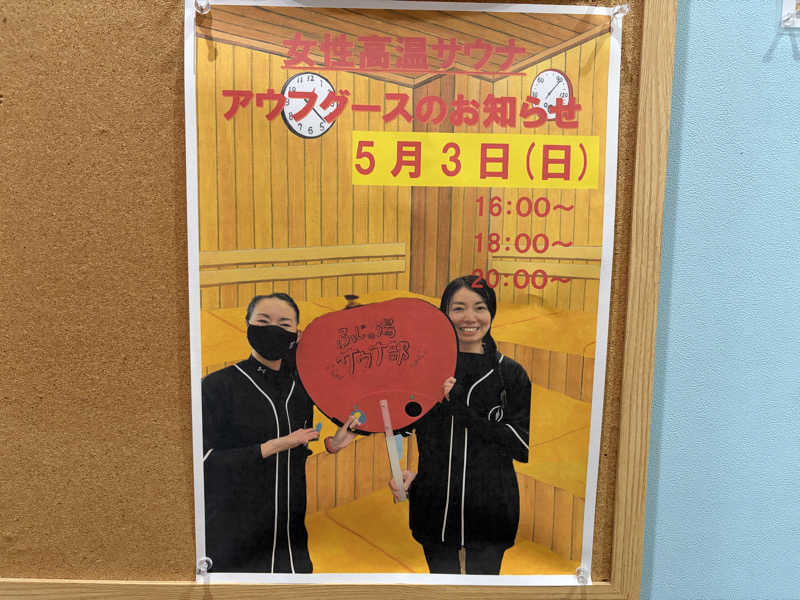 女性高温サウナ
アウフグースのお知らせ
5月3日(日)
16:00～
18:00～
20:00～
ふじの湯
サウナ部